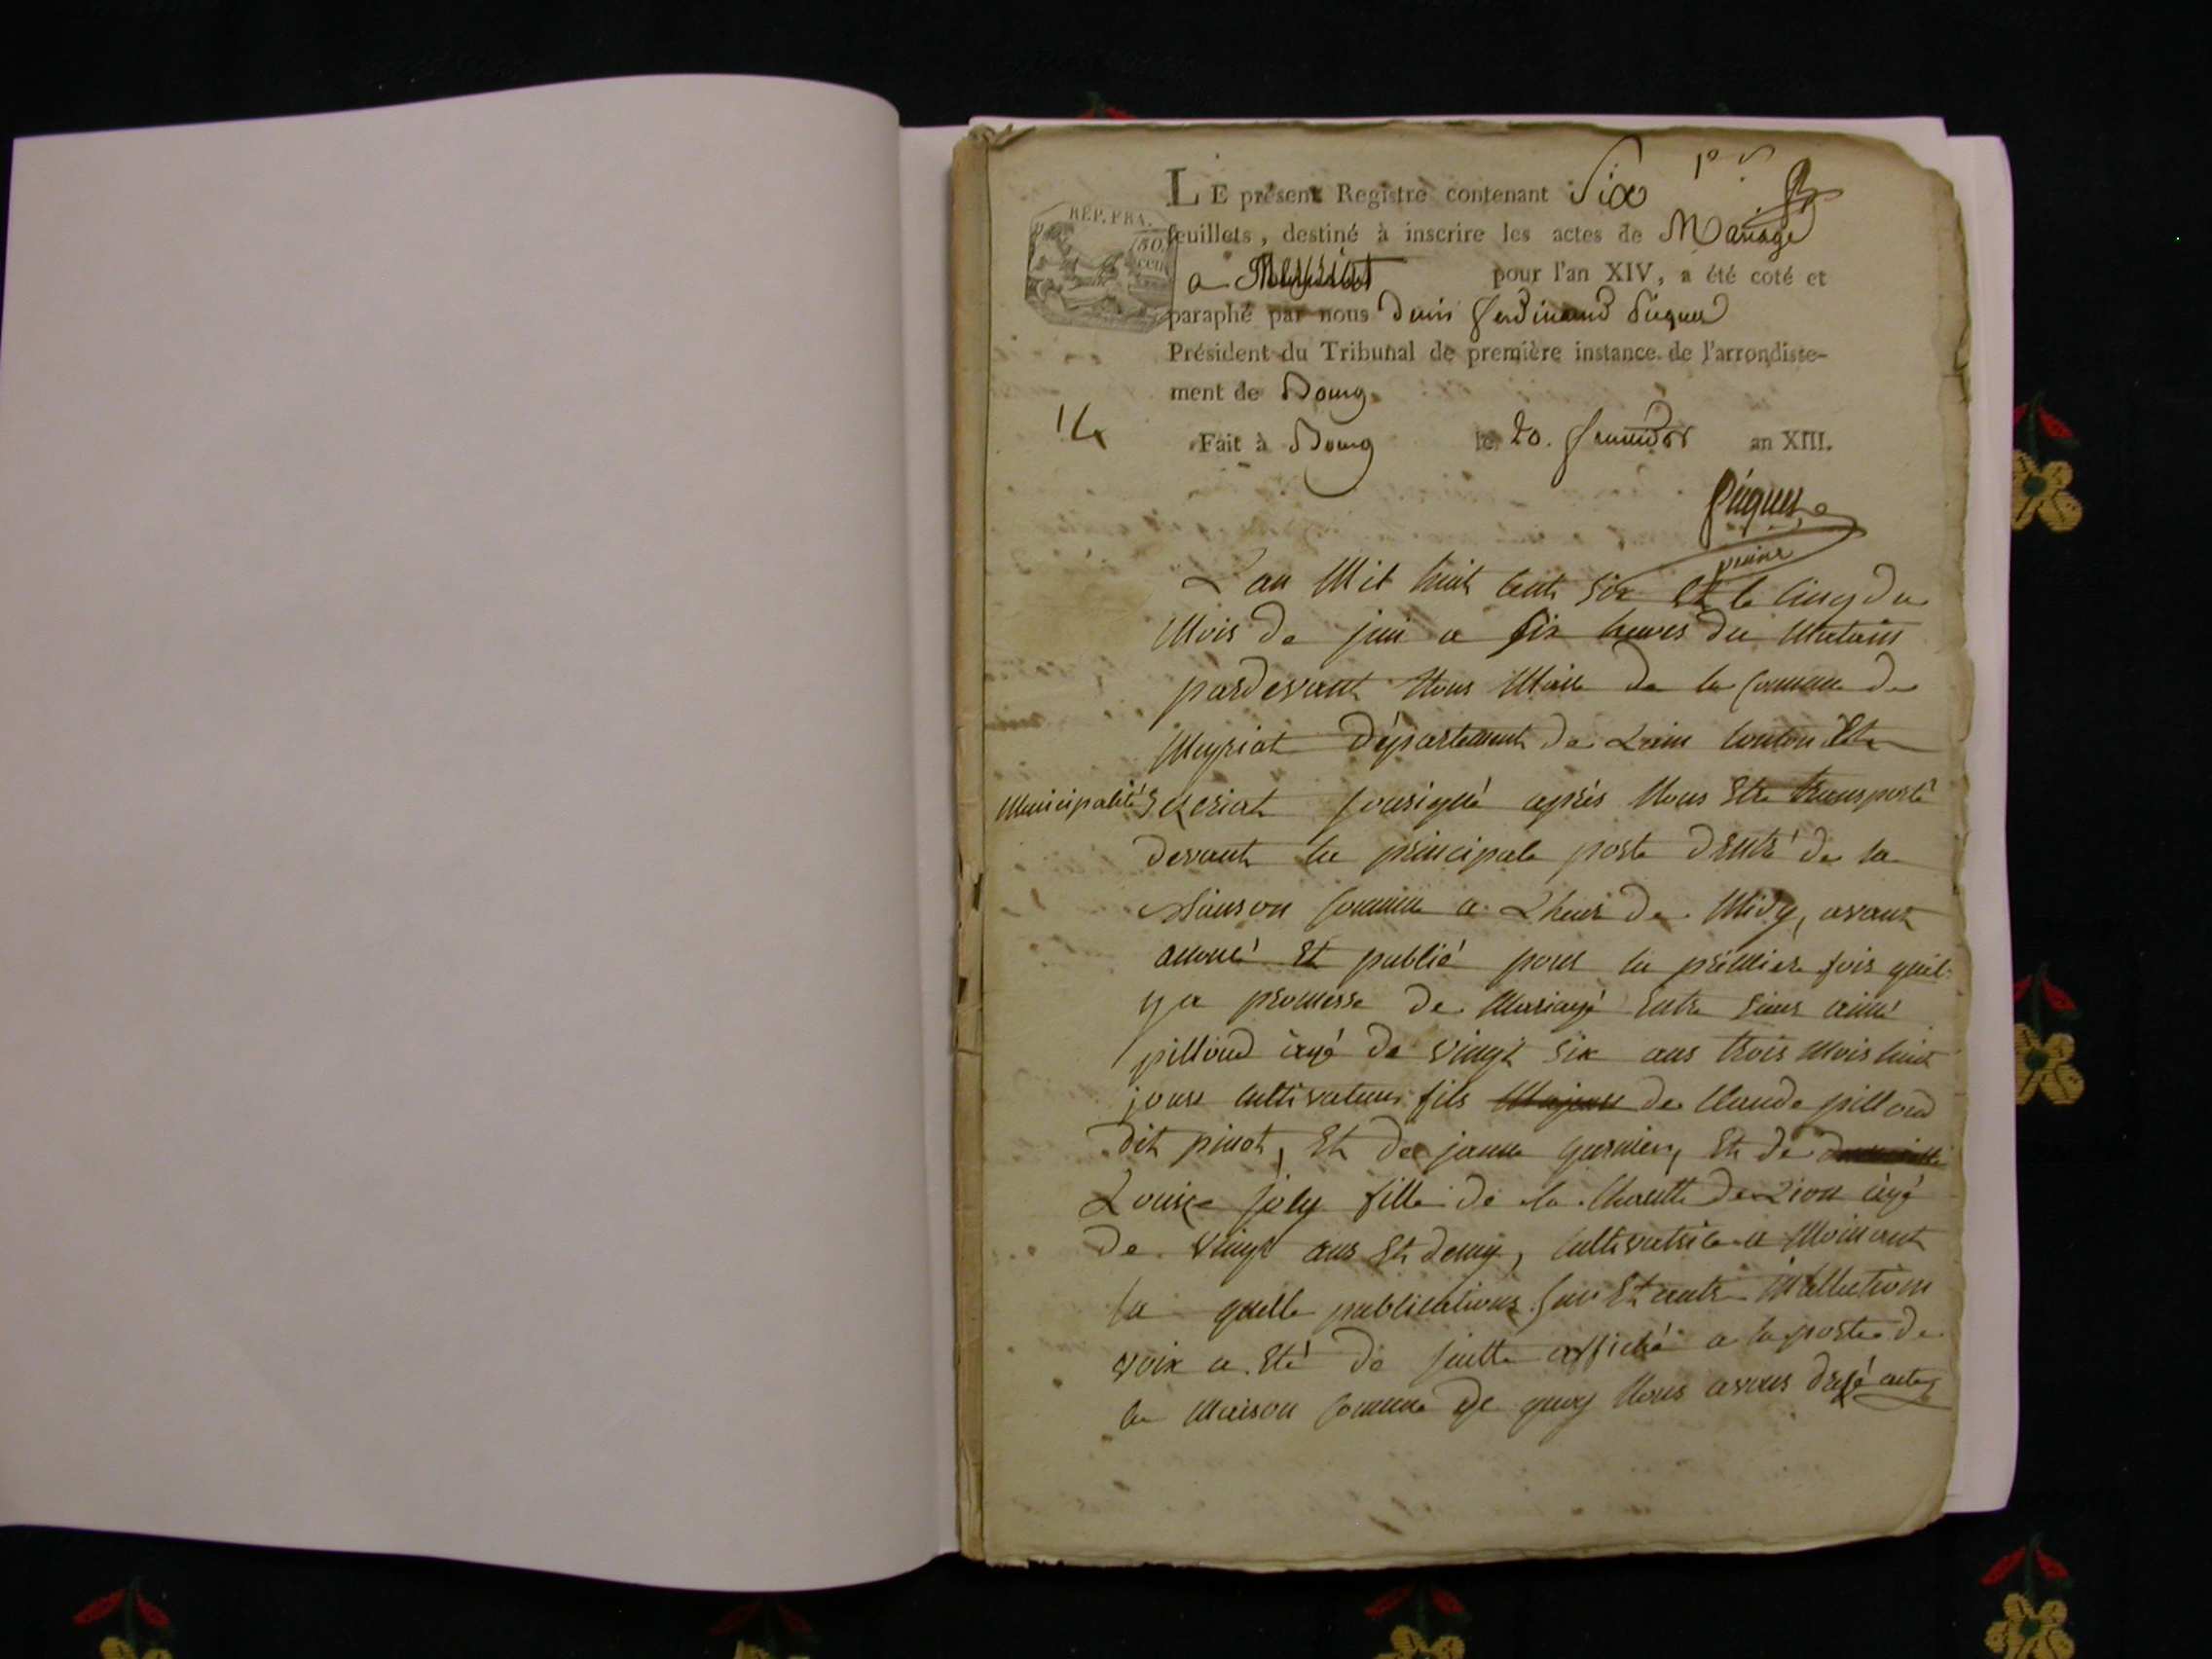 LE présent Registre contenant Six
1er
REP. FRA.
50
cen
feuillets, destiné à inscrire les actes de Mariage
a pour l'an XIV, a été coté et
paraphé par nous Denis ferdinand Picquet
Président du Tribunal de première instance de l'arrondisse-
ment de Bourg
14
Fait à Bourg le 20. fructidor an XIII.
Picquet
L'an Mil huit Cent Six Et le Cinq du
Mois de juin a Six heures du Matain
pardevant Nous Maire de la Comune de
Meyriat département de Lain Conton Et
Municipalité Sezeriat Sousigné après Nous Etre transporté
devant la principale porte dentré de la
Maison Comune a Lheur de Midy, avant
anoncé Et publié pour la premiere fois quil
y a promesse de Mariage Entre Sieur aimé
pilloud àgé de Vingt Six ans trois Mois huit
jours Cultivateur fils Majeur de Claude pilloud
dit pinot, Et de janne garnier, Et de
Louise joly fille de la Charitté de Lion àgé
de Vingt ans Et demy, Cultivatrice a
la quelle publications
voix a Eté de Suitte affiché a la porte de
la Maison Comune de quoy Nous avons dréssé acte